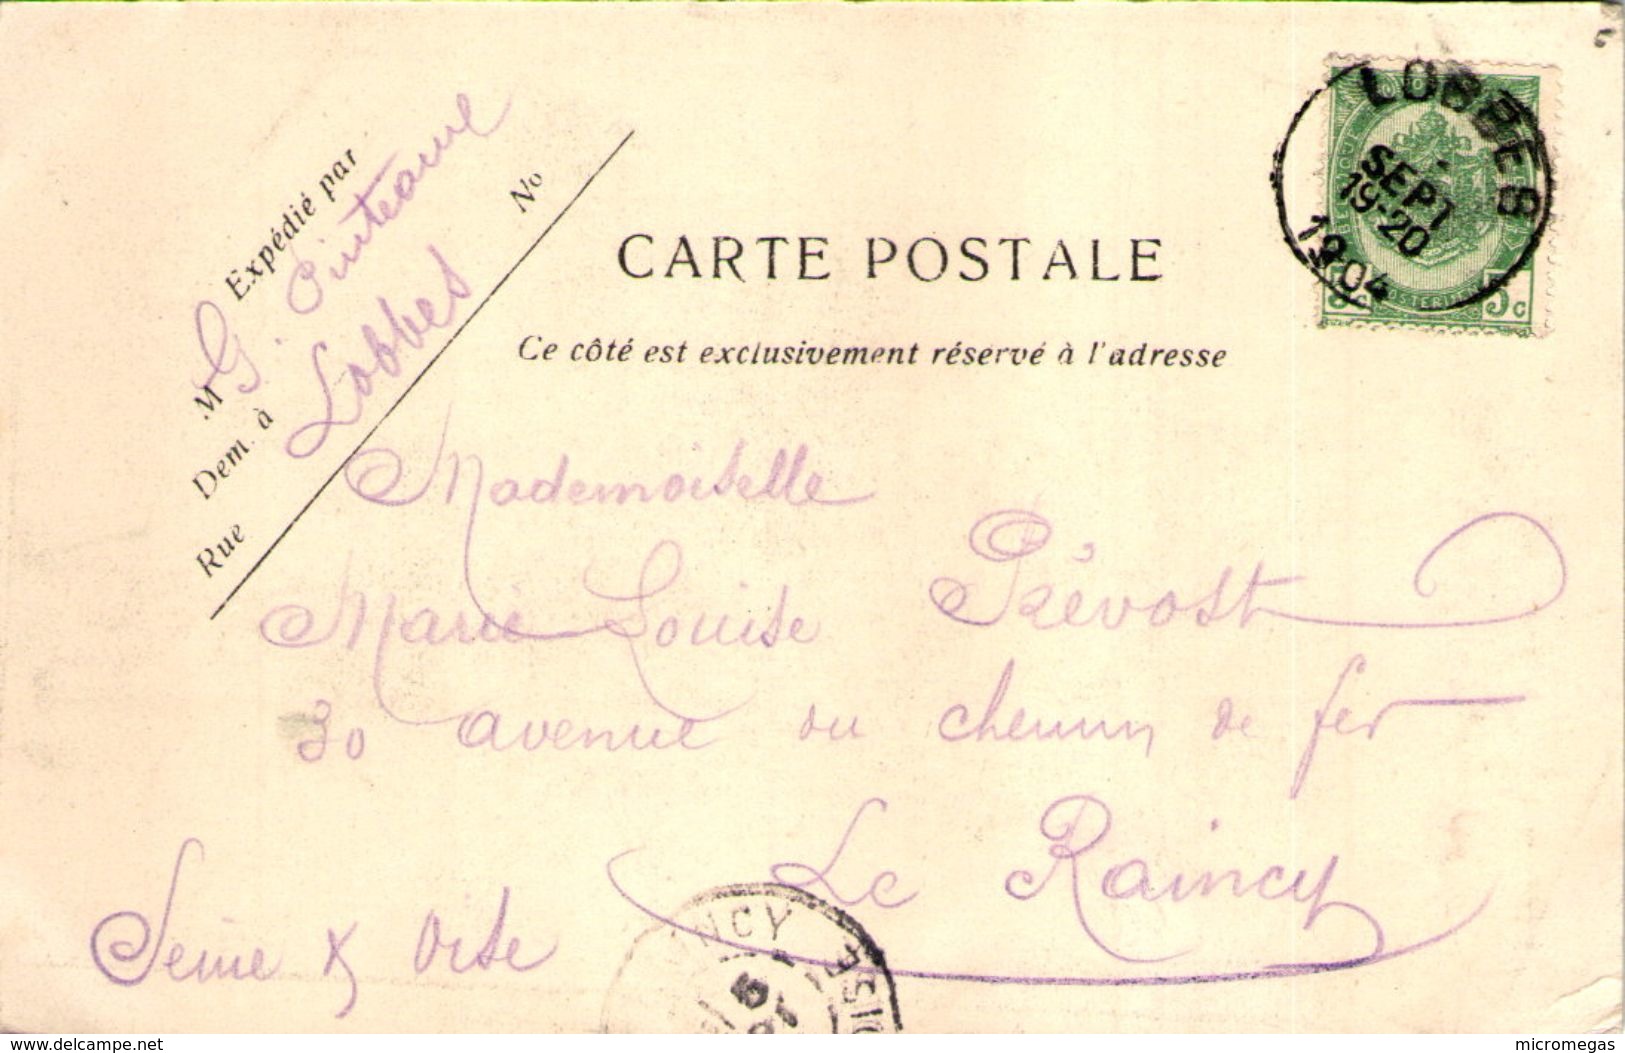 Expédié par
M G. Pinteaux
Dem. à Lobbes
Rue
No
CARTE POSTALE
Ce côté est exclusivement réservé à l'adresse
LOBBES
SEPT
19-20
1904
5c
Mademoiselle
Marie Louise Prévost
30 avenue du chemin de fer
Le Raincy
Seine & Oise
NCY
5
OISE
www.delcampe.net
micromegas